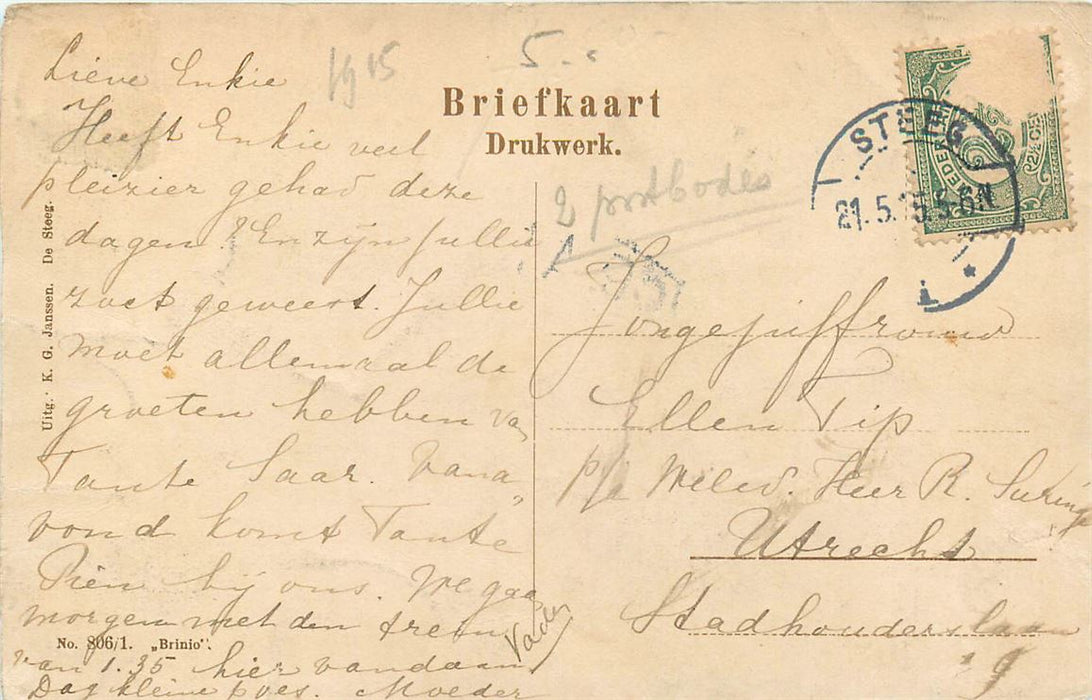 1915
5.-
Briefkaart
Drukwerk.
Lieve Enkie
Heeft Enkie veel
pleizier gehad deze
dagen? En zijn jullie
zoet geweest. Jullie
moet allemaal de
groeten hebben van
Tante Saar. Vana
vond komt Tante
Pien bij ons. We gaan
morgen met den trein
van 1.35 hier vandaan
Dag kleine poes. Moeder
Vader
2 postbodes
STEEG
21.5.15 5-6N
NEDERLAND
2½ CENT
Jongejuffrouw
Ellen Tip
p/a WelEd. Heer R. Suringa
Utrecht
Stadhouderslaan
9
Uitg. K. G. Janssen. De Steeg.
No. 806/1. „Brinio".